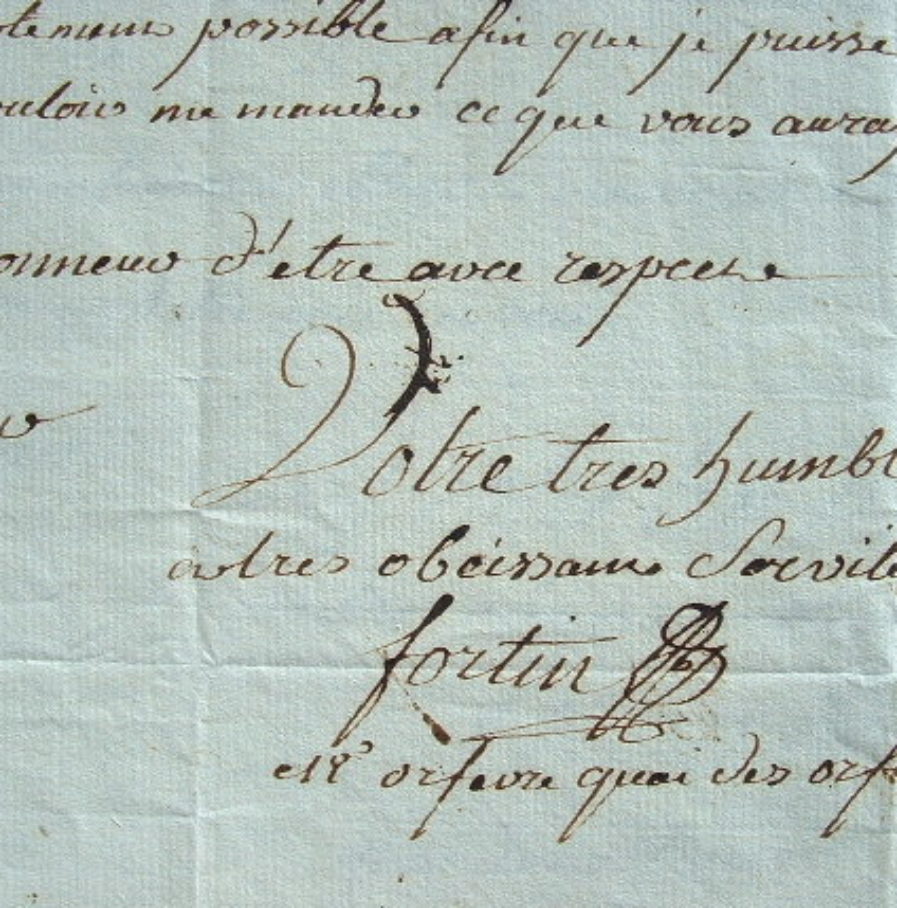 possible afin que je puisse
me mander ce que vous auray
onneur d'etre avec respecte
Votre tres humbl
et tres obeissant Servite
fortin
Md orfevre quai des orf